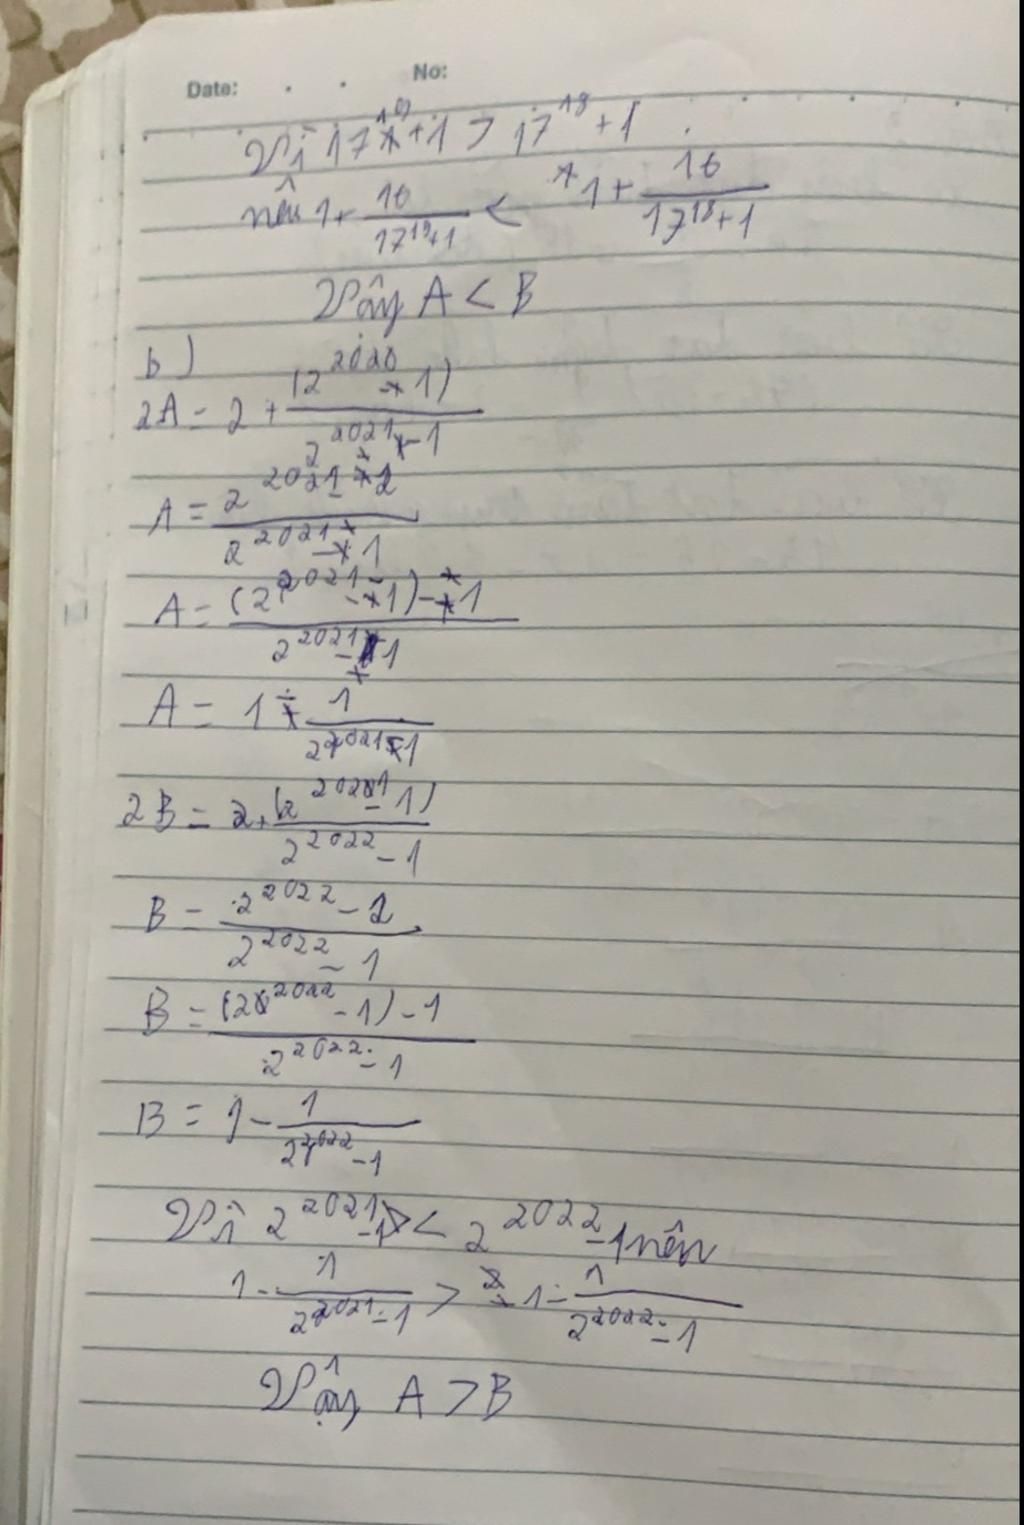 Date: . . No:
Vì 17^19+1 > 17^18+1
nên 1+ 16/(17^19+1) < 1+ 16/(17^18+1)
Vậy A < B
b)
2A = 2 + (2^2020 - 1)/(2^2021 - 1)
A = (2^2021 - 2)/(2^2021 - 1)
A = ((2^2021 - 1) - 1)/(2^2021 - 1)
A = 1 - 1/(2^2021 - 1)
2B = 2 . (2^2021 - 1)/(2^2022 - 1)
B = (2^2022 - 2)/(2^2022 - 1)
B = ((2^2022 - 1) - 1)/(2^2022 - 1)
B = 1 - 1/(2^2022 - 1)
Vì 2^2021 - 1 < 2^2022 - 1 nên
1 - 1/(2^2021 - 1) > 1 - 1/(2^2022 - 1)
Vậy A > B